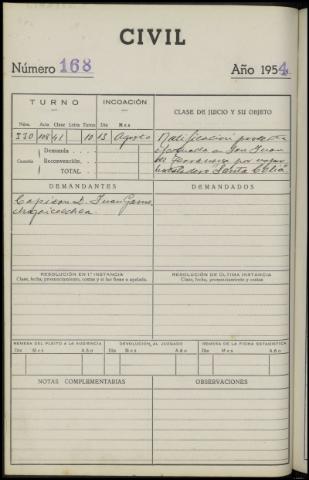 CIVIL
Número 168 Año 1954
TURNO INCOACIÓN CLASE DE JUICIO Y SU OBJETO
Núm. Auto Clase Letra Turno Día Mes
10 13 Agosto
Demanda
Cuantía Reconvención
TOTAL
en San Juan
de por vapor
Santa
DEMANDANTES DEMANDADOS
Capitan D. Juan
RESOLUCIÓN EN 1.ª INSTANCIA RESOLUCIÓN DE ÚLTIMA INSTANCIA
Clase, fecha, pronunciamiento, costas y si fue firme o apelada. Clase, fecha, pronunciamiento y costas
REMESA DEL PLEITO A LA AUDIENCIA DEVOLUCION AL JUZGADO REMESA DE LA FICHA DE ESTADÍSTICA
Día Mes Año Día Mes Año Día Mes Año
NOTAS COMPLEMENTARIAS OBSERVACIONES